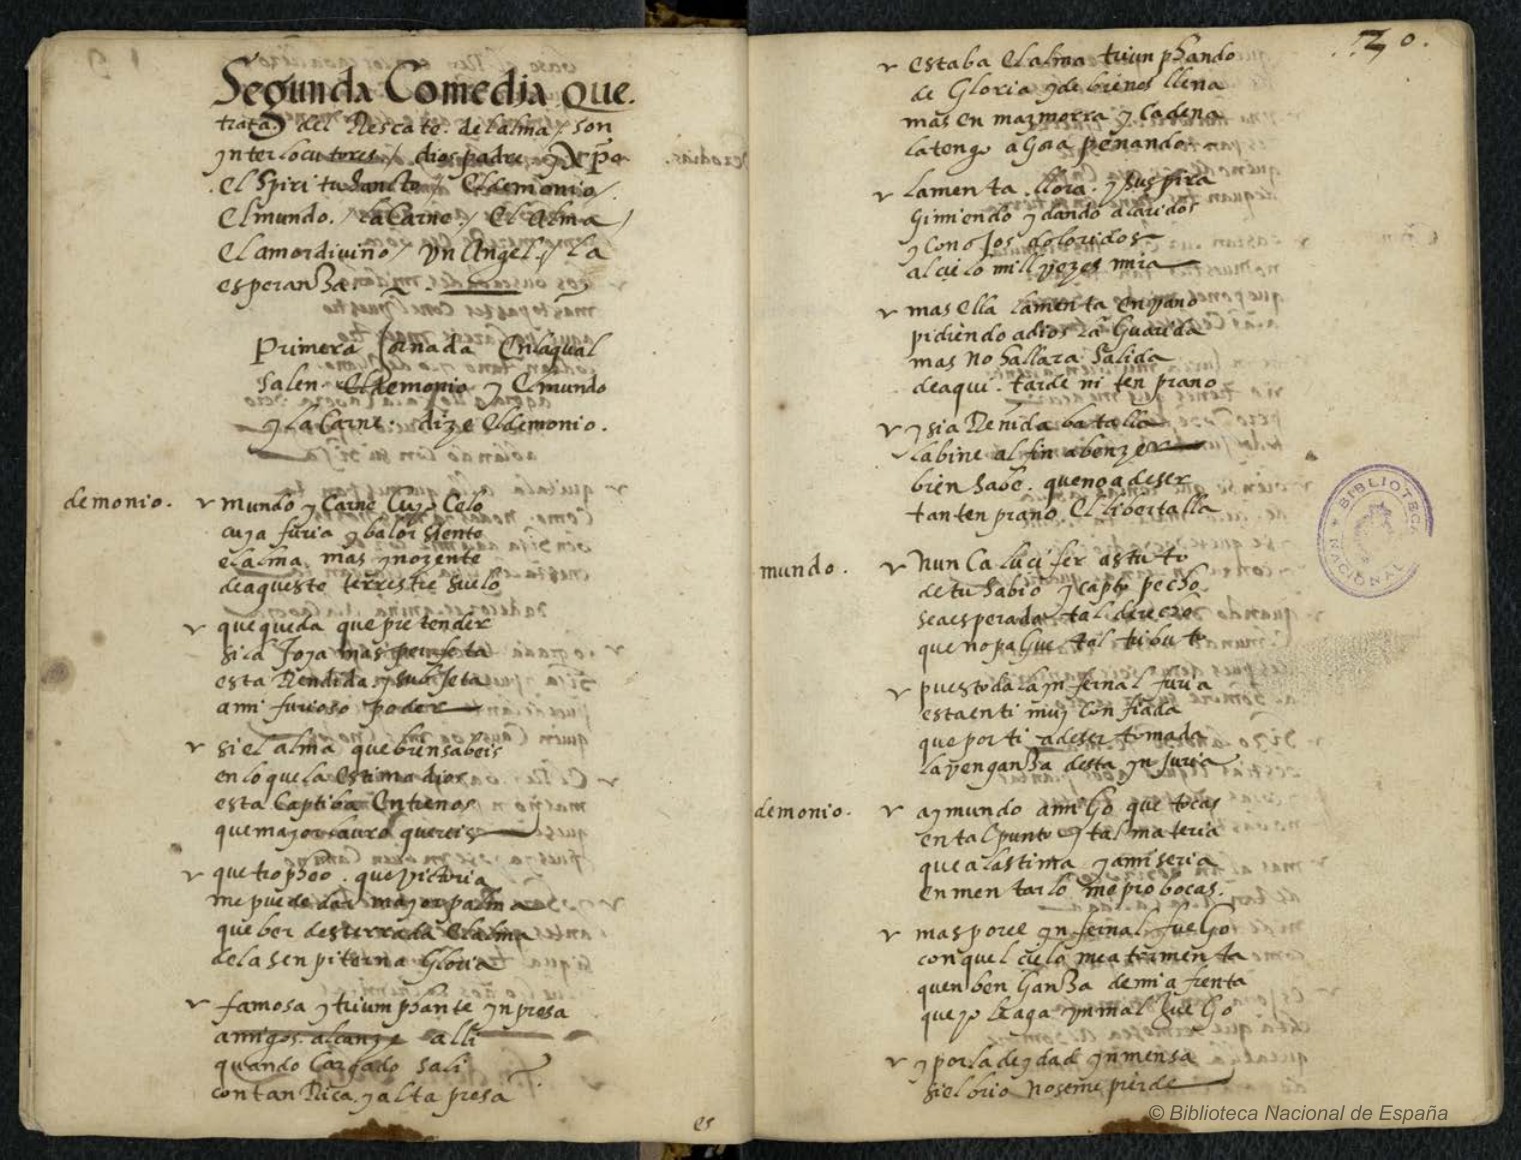 Segunda Comedia que.
trata. del Rescate. del alma / son
ynterlocutores / dios padre, y xpo
el Spiritu Sancto / El demonio /
El mundo. / la Carne / El Alma /
El amor diuino / yn Angel / la
esperanza.
Primera Jornada En la qual
salen. El demonio y El mundo
y la Carne. dize El demonio.
demonio. mundo y Carne Cuyo Celo
cuya furia y balor siente
el alma mas ynozente
de aqueste terrestre suelo
que queda que pretender
si la Joya mas perfeta
esta Rendida y subjeta
a mi furioso poder
si el alma que bien sabeis
en lo que la Estima dios
esta Captiba Entre nos
que mayor lauro quereis
que tropheo. que victoria
me puede dar mayor palma
que ber desterrada El alma
de la senpiterna Gloria
famosa y triumphante ynpresa
amigos. alcanze alli
quando Cargado sali
con tan Rica. y alta presa
es
20.
estaba El alma triumphando
de Gloria y de bienes llena
mas en mazmorra y Cadena
la tengo aGora penando
lamenta. llora. y suspira
Gimiendo y dando alaridos
y con ojos doloridos
al cielo mill vezes mira
mas ella lamenta En vano
pidiendo a dios la Guarida
mas no hallara salida
de aqui. tarde ni tenprano
y si a Reñida batalla
labine al fin a benzer
bien sabe. que no a de ser
tan tenprano El libertalla
mundo. Nunca lucifer astuto
de tu sabio y capto pecho
se a esperado tal derecho
que no paGue tal tributo
pues toda la ynfernal furia
esta en ti muy confiada
que por ti a de ser tomada
la venganza desta ynJuria
demonio. ay mundo amiGo que tocas
en tal punto y tal materia
que a lastima y a miseria
en mentarlo me probocas.
mas por el ynfernal fueGo
con quel cielo me atormenta
quen benGanza de mi afrenta
que yo le aga yn mal JueGo
y por la deydad ynmensa
si el brio no se me pierde
BIBLIOTECA NACIONAL
© Biblioteca Nacional de España